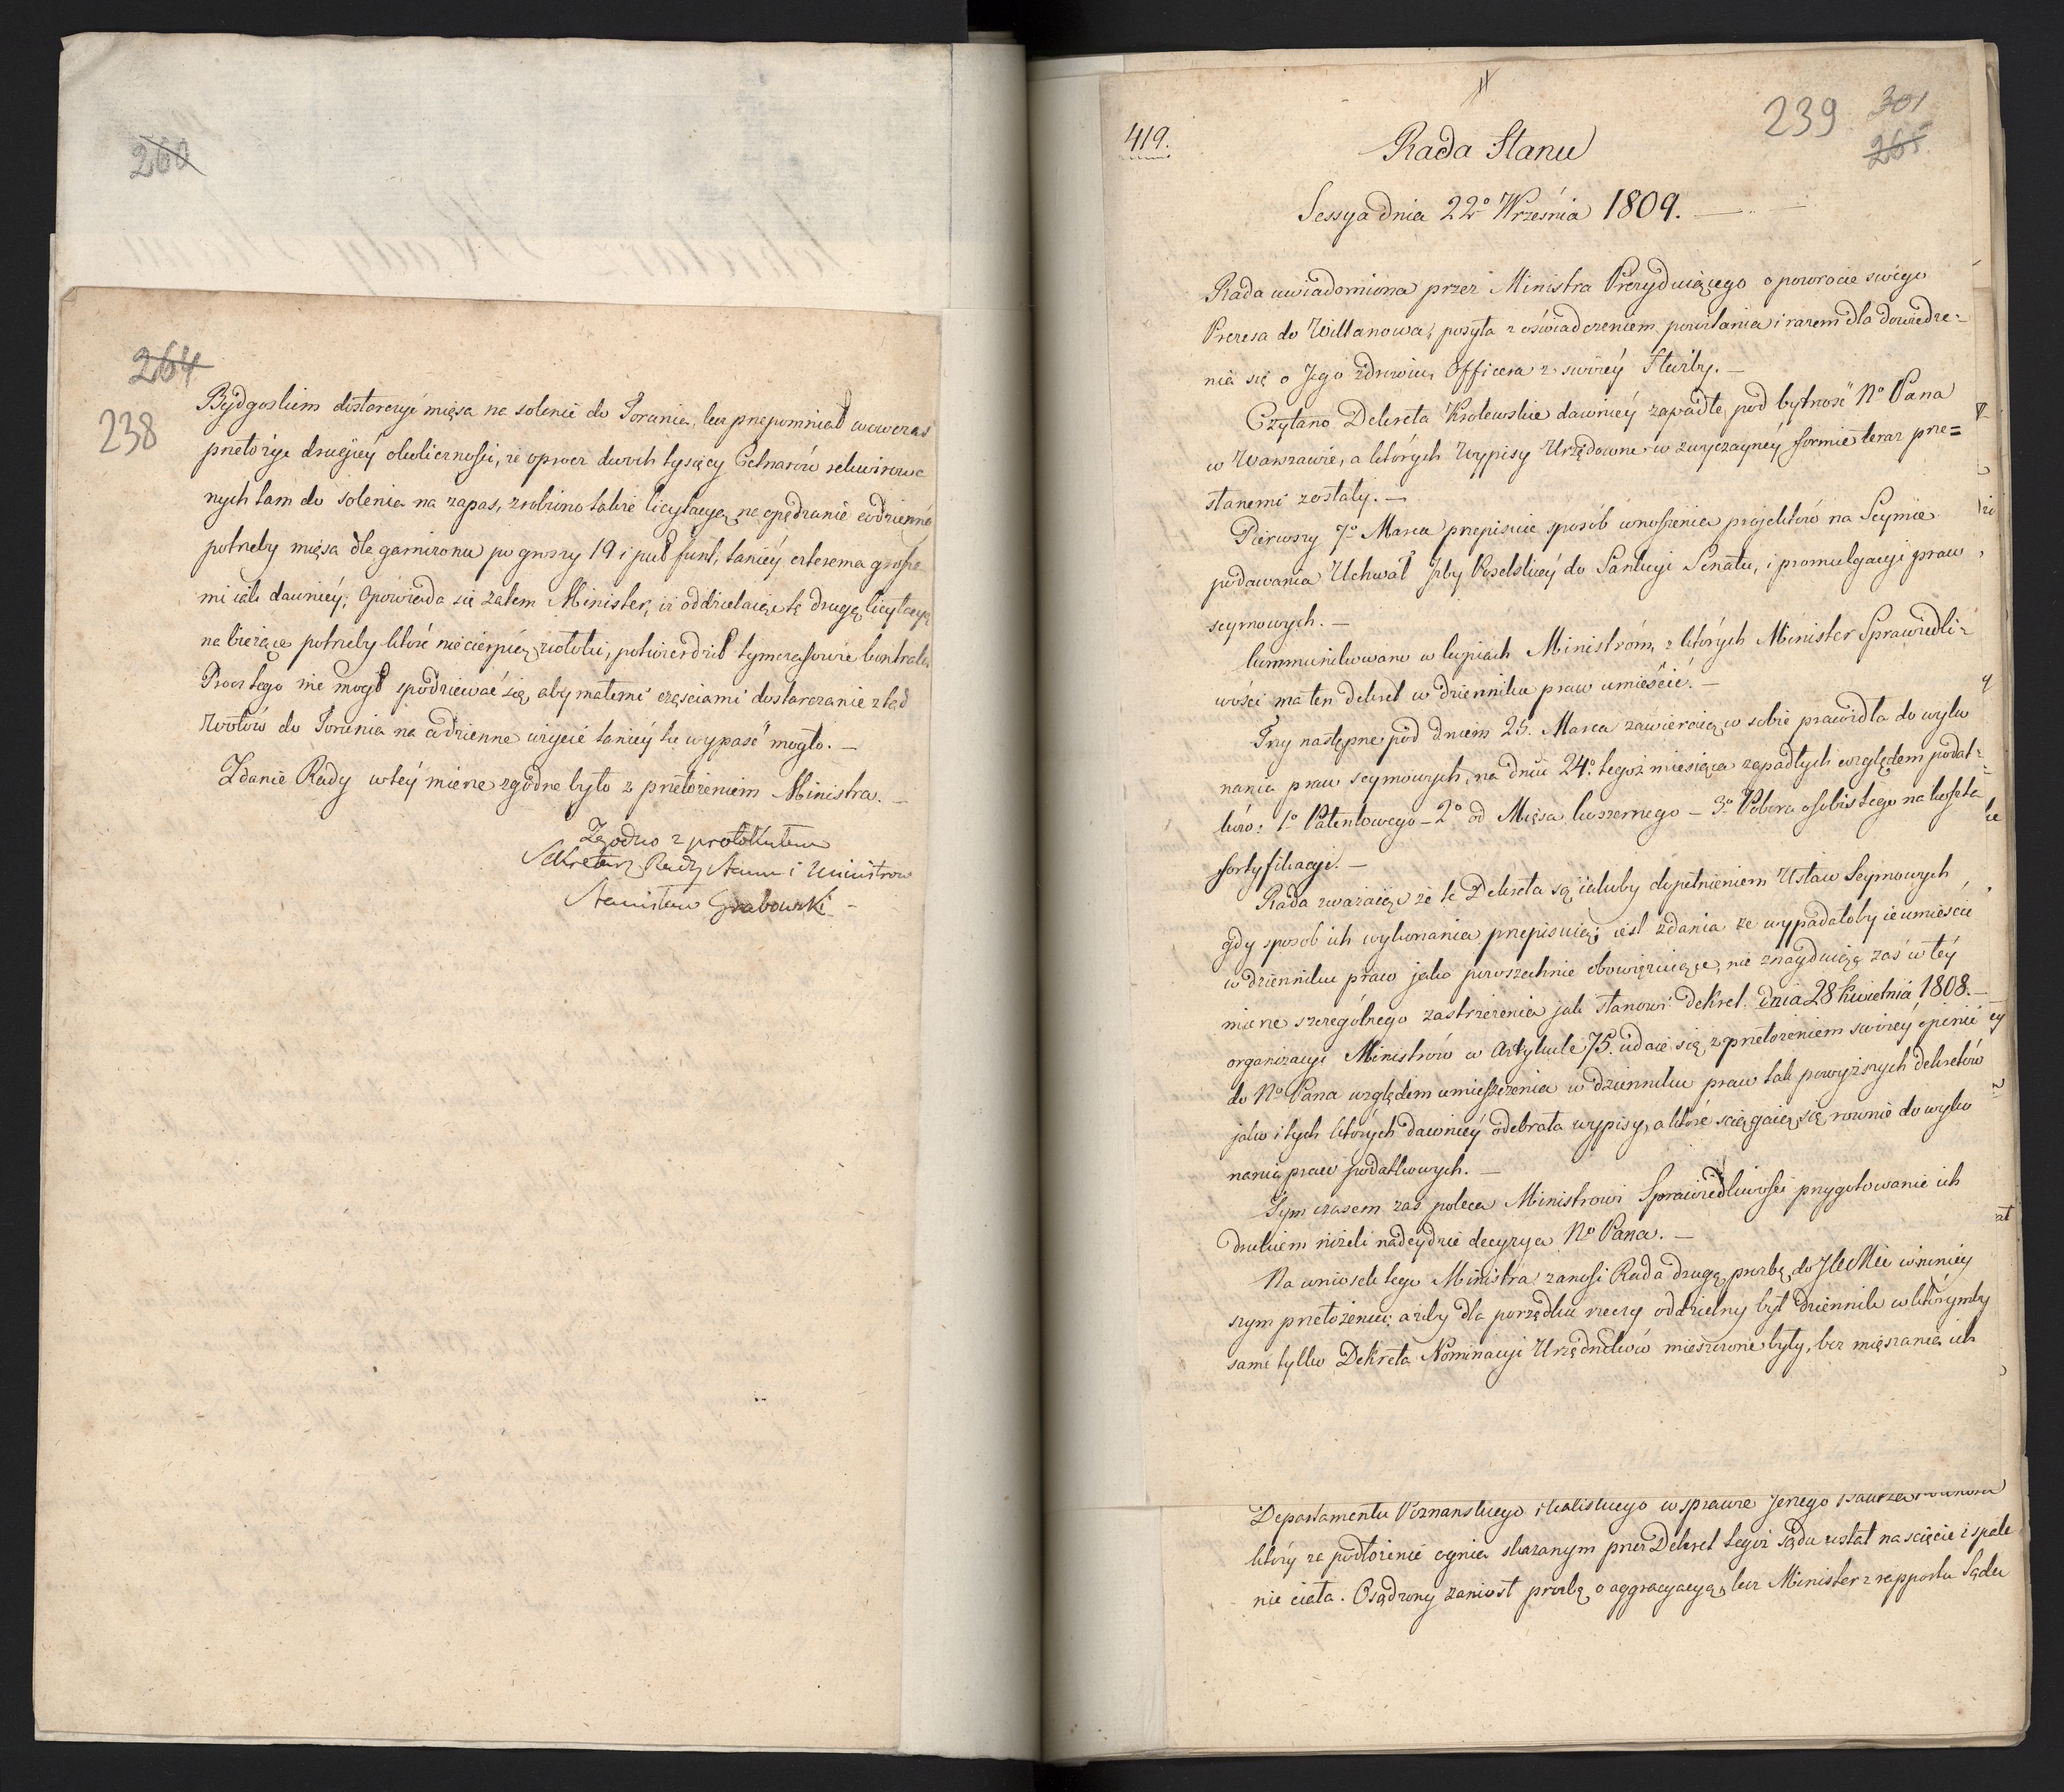 260
264
238
Bydgoskim dostarczyć mięsa na solenie do Torunia, lecz przepomniał wowczas
przełożyć drugiéy okoliczności, że oprocz dwóch tysięcy Cetnarów rekwirowa
nych tam do solenia na zapas, zrobiono także licytacyą na opędzanie codzienné
potrzeby mięsa dla garnizonu po groszy 19 i puł funt, taniéy czterema grosza
mi iak dawniéy; Opowiada się zatem Minister, iż oddzielaiąc tę drugą licytacyą
na bieżące potrzeby które nie cierpią zwłoki, potwierdził tymczasowie kontrakt
Procz tego nie mogł spodziewać się, aby małemi częściami dostarczanie ztąd
wołów do Torunia na codzienne użycie taniéy tu wypaść mogło. —
Zdanie Rady w téy mierze zgodne było z przełożeniem Ministra. —
Zgodno z protokułem
Sekretarz Rady Stanu i Ministrow
Stanisław Grabowski —
419.
239
301
265
Rada Stanu
Sessya dnia 22º Września 1809. —
Rada uwiadomiona przez Ministra Prezyduiącego o powrocie swego
Prezesa do Willanowa, posyła z oświadczeniem powitania i razem dla dowiedze=
nia się o Jego zdrowiu Officera z swoiéy Służby. —
Czytano Dekreta Krolewskie dawniéy zapadłe, pod bytność Nº Pana
w Warszawie, a których Wypisy Urzędowne w zwyczayněy formie teraz prze=
słanemi zostały. —
Pierwszy 7º Marca przepisuie sposób wnoszenia projektów na Seymie
podawania Uchwał Izby Poselskiéy do Sankcyi Senatu, i promulgacyi praw
seymowych. —
kommunikowano w kopiach Ministróm, z których Minister Sprawiedli=
wości ma ten dekret w dzienniku praw umieścić. —
Trzy następne pod dniem 25. Marca zawieraią w sobie prawidła do wyko
nania praw seymowych, na dniu 24º tegoż miesiąca zapadłych względem podat=
ków: 1º Patentowego — 2º od Mięsa koszernego — 3º Poboru osobistego na koszta
fortyfikacyi. —
Rada zważaiąc że te Dekreta są iakoby dopełnieniem Ustaw Seymowych
gdy sposob ich wykonania przepisuią; iest zdania że wypadałoby ie umieścić
w dzienniku praw jako powszechnie obowięzuiące, nie znayduiąc zaś w téy
mierze szczególnego zastrzeżenia jak stanowi dekret dnia 28 kwietnia 1808. —
organizacyi Ministrów w Artykule 75. udaie się z przełożeniem swoiéy opinii
do Nº Pana względem umieszczenia w dzienniku praw tak powyższych dekretów
jako i tych których dawniéy odebrała wypisy, a które ściągaią się rownie do wyko
nania praw podatkowych. —
Tym czasem zaś poleca Ministrowi Sprawiedliwości przygotowanie ich
drukiem niżeli nadeydzie decyzya Nº Pana. —
Na wniosek tego Ministra zanosi Rada drugą prozbę do JKMci w ninniey
szym przełożeniu, ażeby dla porządku rzeczy oddzielny był dziennik w którymby
same tylko Dekreta Nominacyi Urzędników mieszczone były, bez mięszania ich
Departamentu Poznanskiego i kaliskiego w sprawie Jerzego
który za podłożenie ognia skazanym przez Dekret tegoż sądu został na scięcie i spale
nie ciała. Osądzony zaniosł prozbę o aggracyacyą, lecz Minister z rapportu Sądu